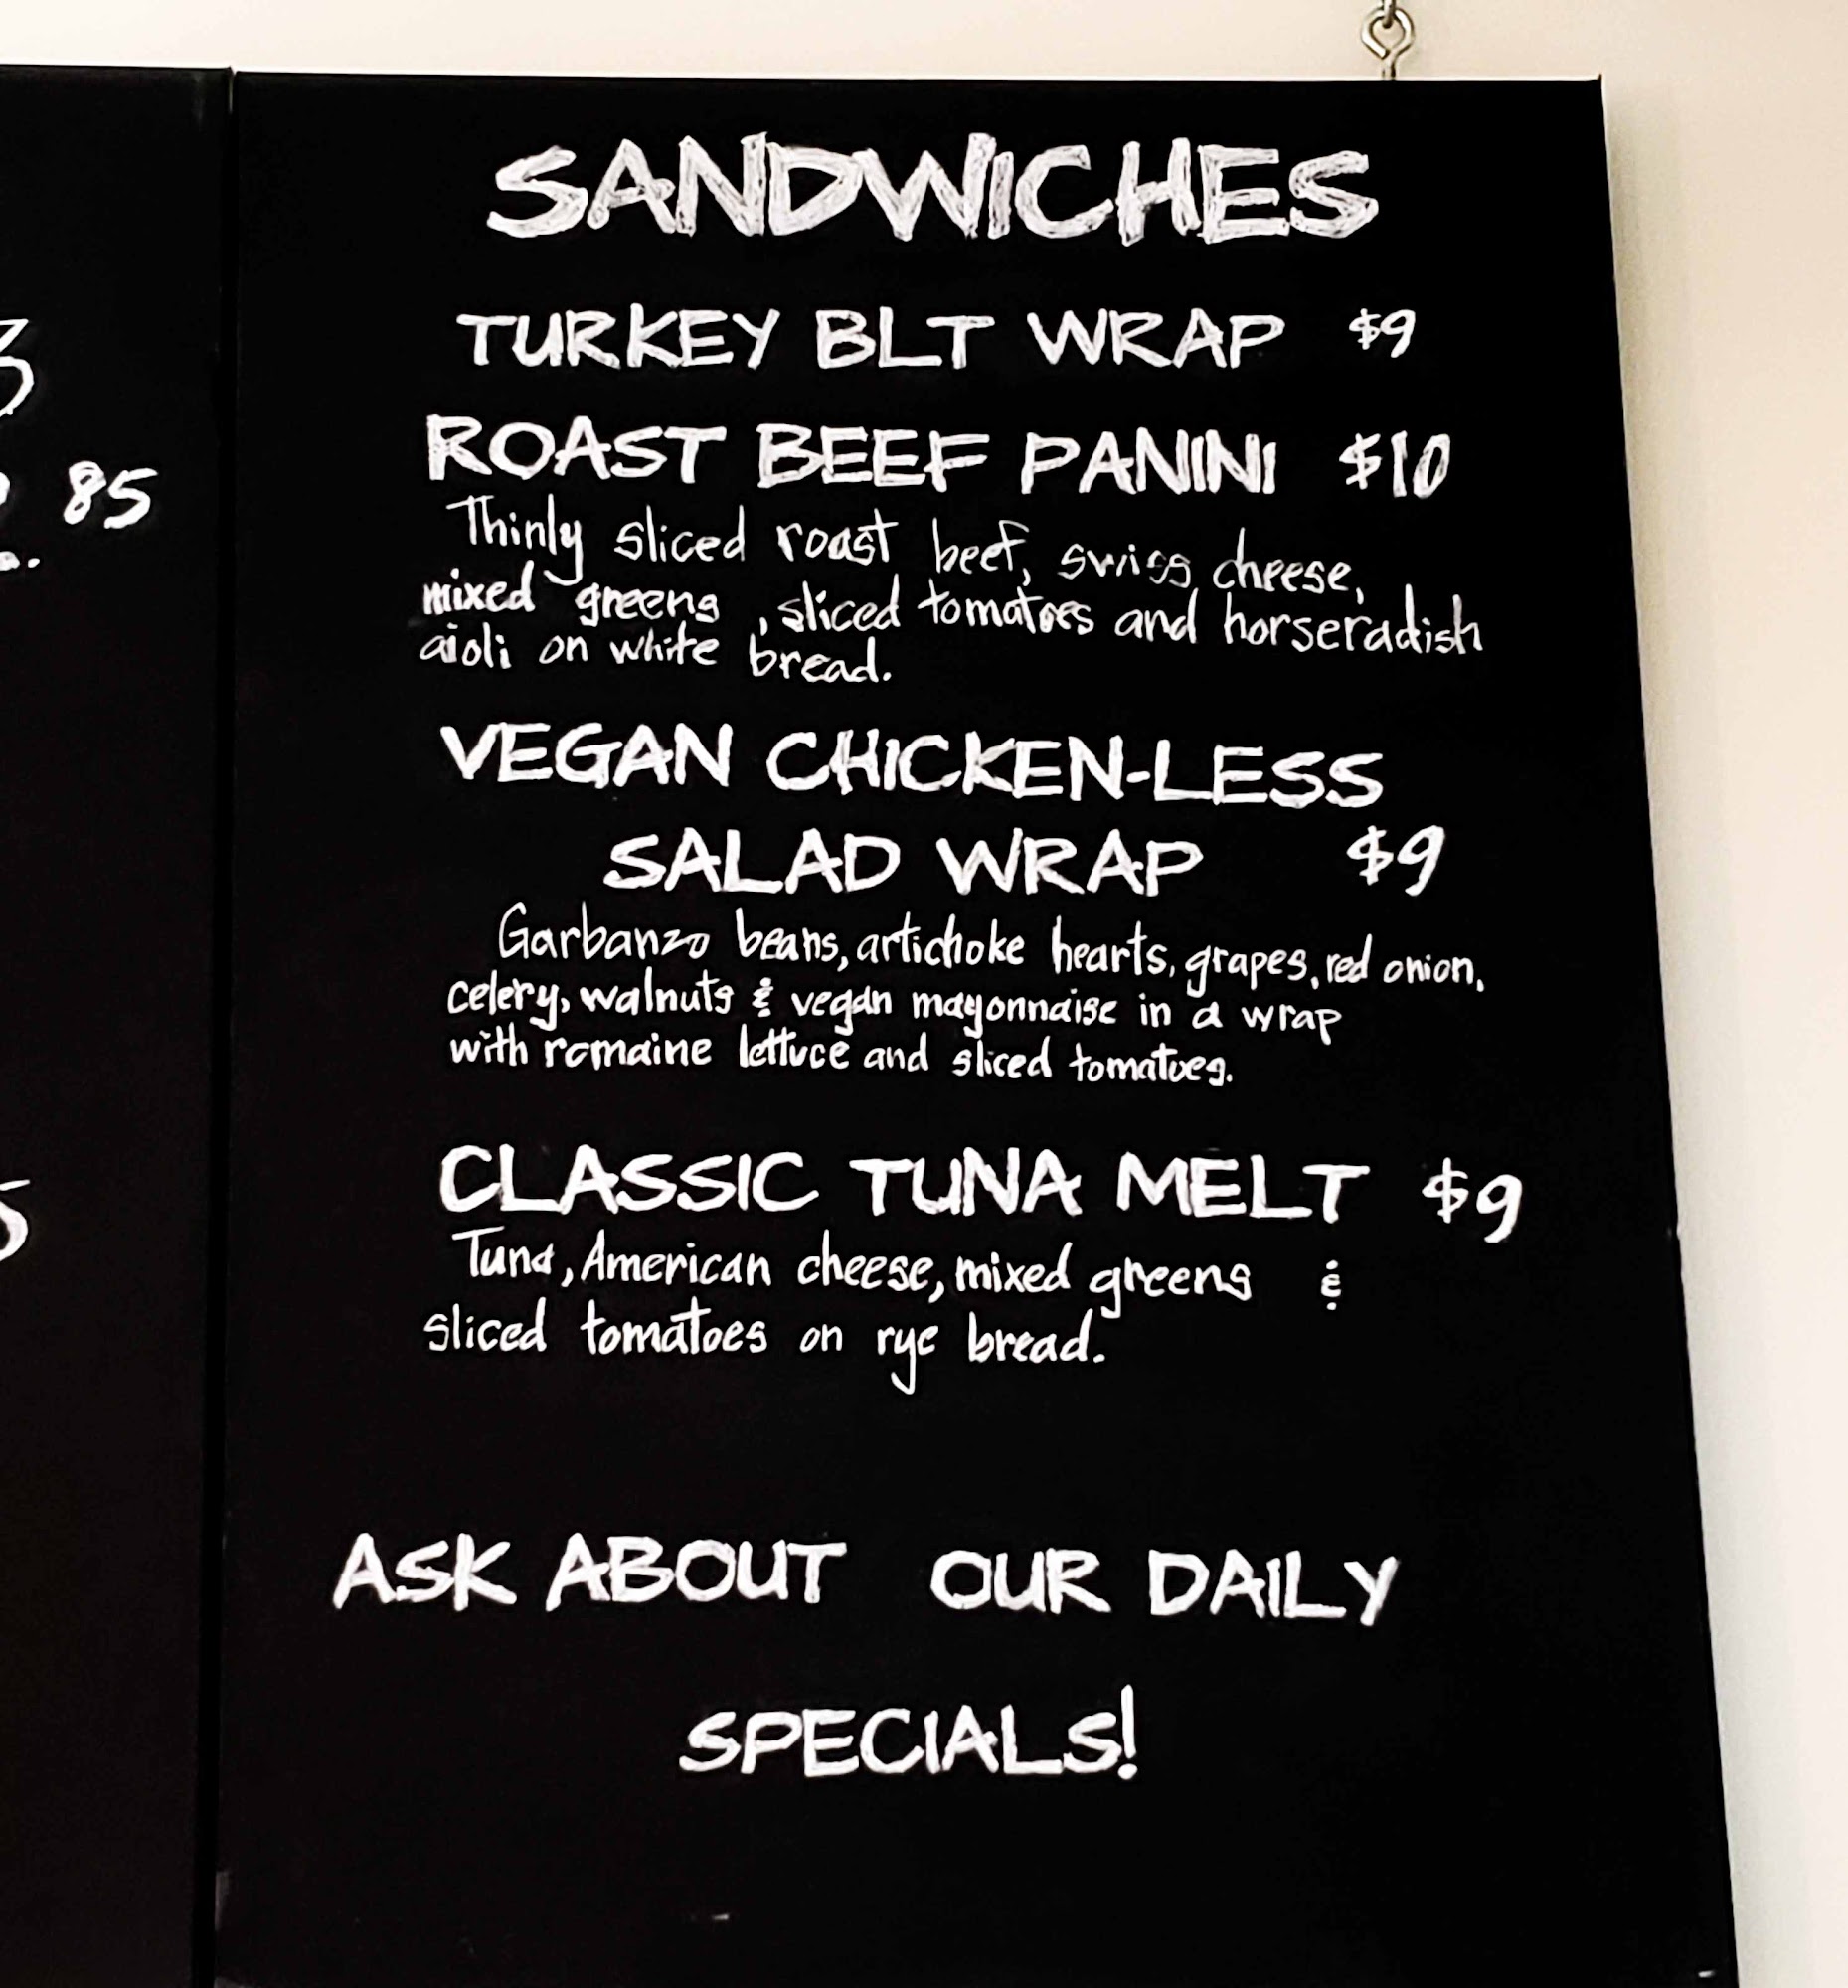 85
SANDWICHES
TURKEY BLT WRAP $9
ROAST BEEF PANINI $10
Thinly sliced roast beef, swiss cheese,
mixed greens , sliced tomatoes and horseradish
aioli on white bread.
VEGAN CHICKEN-LESS
SALAD WRAP $9
Garbanzo beans, artichoke hearts, grapes, red onion,
celery, walnuts & vegan mayonnaise in a wrap
with romaine lettuce and sliced tomatoes.
CLASSIC TUNA MELT $9
Tuna, American cheese, mixed greens &
sliced tomatoes on rye bread.
ASK ABOUT OUR DAILY
SPECIALS!